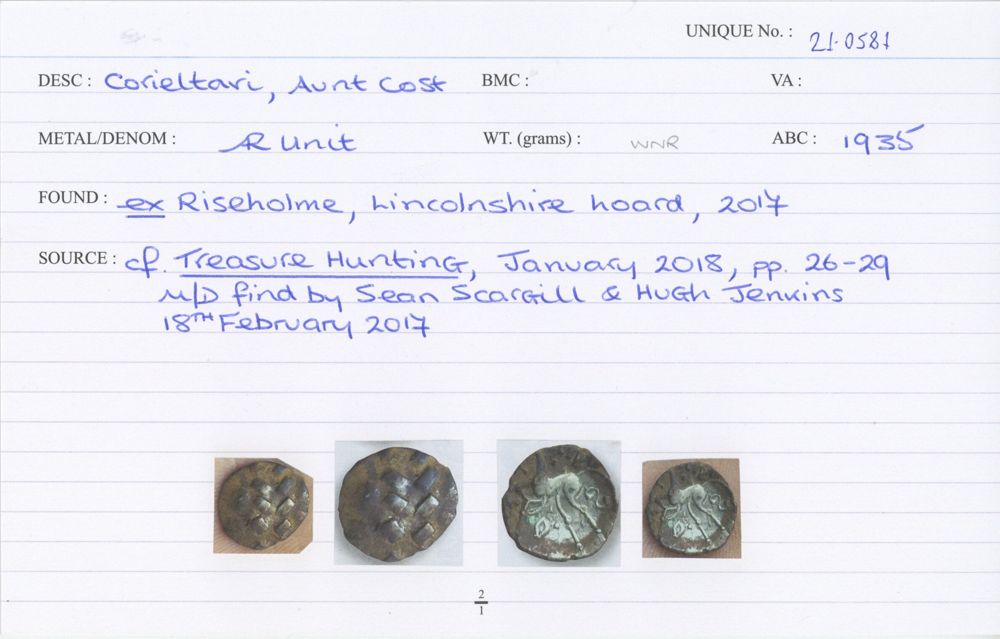 UNIQUE No. : 21.0581
DESC : Corieltavi, Aunt Cost BMC : VA :
METAL/DENOM : AR Unit WT. (grams) : WNR ABC : 1935
FOUND : ex Riseholme, Lincolnshire hoard, 2017
SOURCE : cf. Treasure Hunting, January 2018, pp. 26-29
M/D find by Sean Scargill & Hugh Jenkins
18TH February 2017
2
1